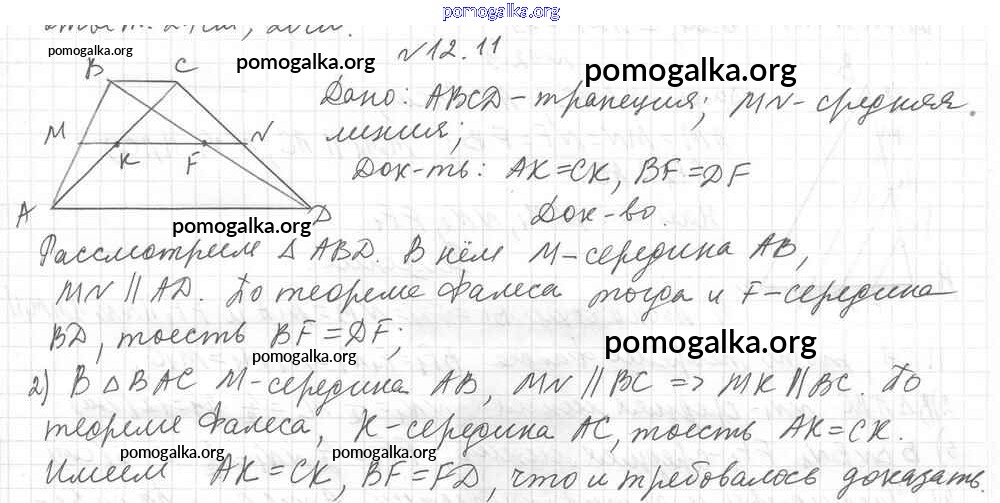 pomogalka.org
ответ: 24см, 20см.
pomogalka.org
pomogalka.org
N12.11
pomogalka.org
B C
M N
K F
A D
Дано: ABCD-трапеция; MN-средняя
линия;
Док-ть: AK=CK, BF=DF
Док-во.
pomogalka.org
Рассмотрим △ ABD. В нём M-середина AB,
MN || AD. По теореме Фалеса тогда и F-середина
BD, тоесть BF=DF;
pomogalka.org
pomogalka.org
2) В △ BAC M-середина AB, MN || BC => MK || BC. По
теореме Фалеса, K-середина AC, тоесть AK=CK.
pomogalka.org
pomogalka.org
Имеем AK=CK, BF=FD, что и требовалось доказать.